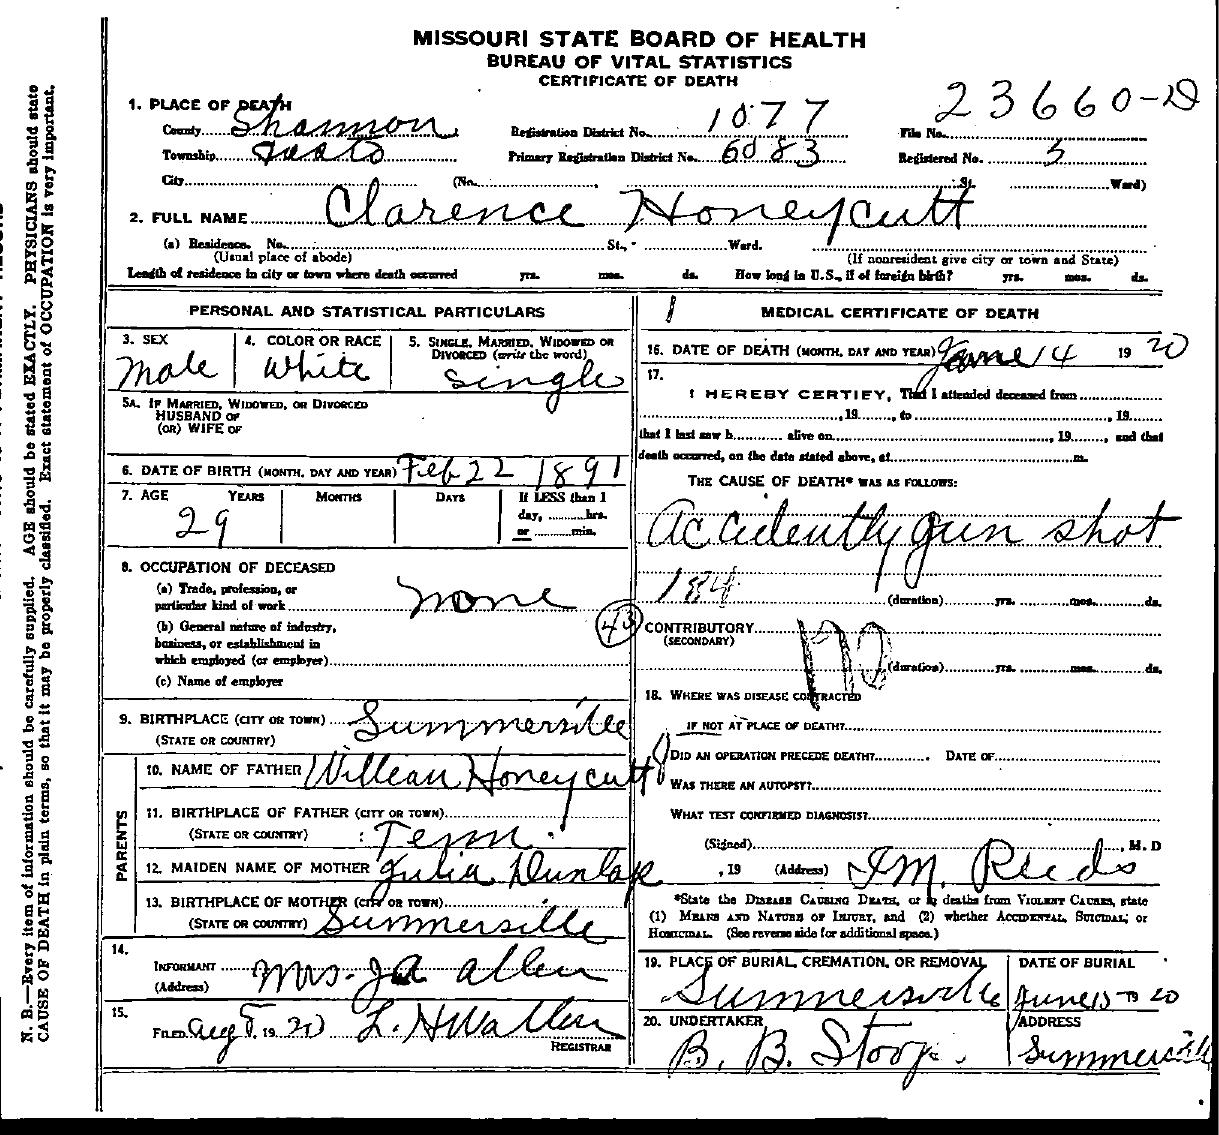 MISSOURI STATE BOARD OF HEALTH
BUREAU OF VITAL STATISTICS
CERTIFICATE OF DEATH
23660-D
1. PLACE OF DEATH
County Shannon Registration District No. 1077 File No.
Township Registration District No. 6083 Registered No. 5
City (No. , St. Ward)
2. FULL NAME Clarence Honeycutt
(a) Residence. No. St., Ward.
(Usual place of abode) (If nonresident give city or town and State)
Length of residence in city or town where death occurred yrs. mos. ds. How long in U.S., if of foreign birth? yrs. mos. ds.
PERSONAL AND STATISTICAL PARTICULARS
3. SEX 4. COLOR OR RACE 5. SINGLE, MARRIED, WIDOWED OR DIVORCED (write the word)
Male White Single
5A. IF MARRIED, WIDOWED, OR DIVORCED
HUSBAND OF
(OR) WIFE OF
6. DATE OF BIRTH (MONTH, DAY AND YEAR) Feb 22 1891
7. AGE YEARS MONTHS DAYS If LESS than 1
day, hrs.
or min.
29
8. OCCUPATION OF DECEASED
(a) Trade, profession, or
particular kind of work none
(b) General nature of industry,
business, or establishment in
which employed (or employer)
(c) Name of employer
43
9. BIRTHPLACE (CITY OR TOWN) Summersille
(STATE OR COUNTRY)
PARENTS
10. NAME OF FATHER Willean Honeycutt
11. BIRTHPLACE OF FATHER (CITY OR TOWN)
(STATE OR COUNTRY) Tenn.
12. MAIDEN NAME OF MOTHER Julia Dunlap
13. BIRTHPLACE OF MOTHER (CITY OR TOWN)
(STATE OR COUNTRY) Summersille
14.
INFORMANT Mrs. J A Allen
(Address)
15.
FILED Aug 1920 L. H Wallen
REGISTRAR
1 MEDICAL CERTIFICATE OF DEATH
16. DATE OF DEATH (MONTH, DAY AND YEAR) June 14 1920
17.
I HEREBY CERTIFY, That I attended deceased from
, 19 , to , 19
that I last saw h alive on , 19 , and that
death occurred, on the date stated above, at m.
THE CAUSE OF DEATH* WAS AS FOLLOWS:
Accidently gun shot
184 (duration) yrs. mos. ds.
CONTRIBUTORY
(SECONDARY)
170 (duration) yrs. mos. ds.
18. WHERE WAS DISEASE CONTRACTED
IF NOT AT PLACE OF DEATH?
DID AN OPERATION PRECEDE DEATH? DATE OF
WAS THERE AN AUTOPSY?
WHAT TEST CONFIRMED DIAGNOSIS?
(Signed) , M. D
, 19 (Address) I M. Reeds
*State the DISEASE CAUSING DEATH, or in deaths from VIOLENT CAUSES, state
(1) MEANS AND NATURE OF INJURY, and (2) whether ACCIDENTAL, SUICIDAL, or
HOMICIDAL. (See reverse side for additional space.)
19. PLACE OF BURIAL, CREMATION, OR REMOVAL DATE OF BURIAL
Summersville June 15 1920
20. UNDERTAKER ADDRESS
B. B. Stoops. Summersville
N. B.—Every item of information should be carefully supplied. AGE should be stated EXACTLY. PHYSICIANS should state
CAUSE OF DEATH in plain terms, so that it may be properly classified. Exact statement of OCCUPATION is very important.